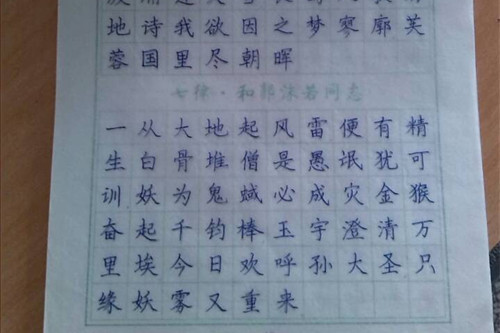 地诗我欲因之梦寥廓芙
蓉国里尽朝晖
七律·和郭沫若同志
一从大地起风雷便有精
生白骨堆僧是愚氓犹可
训妖为鬼蜮必成灾金猴
奋起千钧棒玉宇澄清万
里埃今日欢呼孙大圣只
缘妖雾又重来